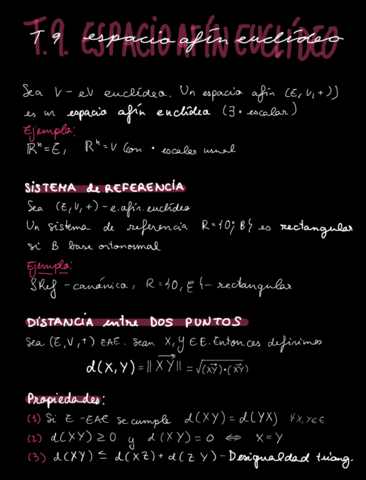 T.9. ESPACIO AFÍN EUCLÍDEO
Sea V - eV euclídea. Un espacio afín (E, V, +)]
es un espacio afín euclídea (∃ • escalar)
Ejemplo:
ℝⁿ = E, ℝⁿ = V con • escalar usual
SISTEMA de REFERENCIA
Sea (E, V, +) - e. afín. euclídeo
Un sistema de referencia R = {0; B} es rectangular
si B base ortonormal
Ejemplo:
SRef - canónica, R = {0, ξ} - rectangular
DISTANCIA entre DOS PUNTOS
Sea (E, V, +) EAE. Sean X, Y ∈ E. Entonces definimos
d(X, Y) = ||XY|| = √(XY)•(XY)
Propiedades:
(1) Si E - EAE se cumple d(XY) = d(YX) ∀X,Y∈E
(2) d(XY) ≥ 0 y d(XY) = 0 ⇔ X = Y
(3) d(XY) ≤ d(XZ) + d(ZY) - Desigualdad triang.